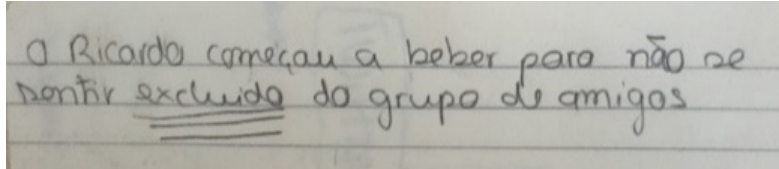 O Ricardo começou a beber para não se
sentir excluido do grupo de amigos